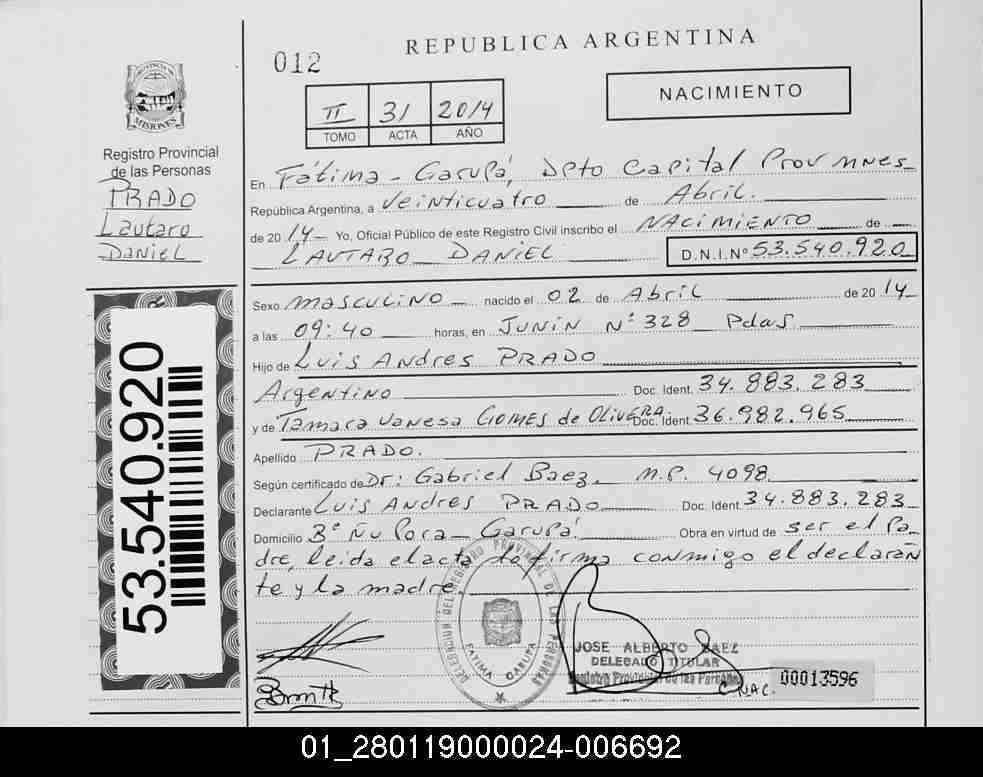 REPUBLICA ARGENTINA
012
NACIMIENTO
II 31 2014
TOMO ACTA AÑO
PROVINCIA DE MISIONES
Registro Provincial
de las Personas
PRADO
Lautaro
Daniel
53.540.920
En Fátima - Garupá, Dpto Capital Prov Mnes
República Argentina, a Veinticuatro de Abril.
de 2014 Yo, Oficial Público de este Registro Civil inscribo el NACIMIENTO de
LAUTARO DANIEL D.N.I.Nº 53.540.920
Sexo masculino nacido el 02 de Abril de 2014
a las 09:40 horas, en JUNIN Nº 328 Pdas
Hijo de LUIS ANDRES PRADO
Argentino Doc. Ident. 34.883.283
y de Tamara Vanesa GOMES de OLIVERA. Doc. Ident. 36.982.965
Apellido PRADO.
Según certificado de Dr: Gabriel Baez. M.P. 4098
Declarante LUIS ANDRES PRADO Doc. Ident. 34.883.283
Domicilio Bº Ñu Pora - Garupá Obra en virtud de ser el Pa-
dre, leida el acta la firma conmigo el declaran
te y la madre
DELEGACION DEL REGISTRO PROVINCIAL DE LAS PERSONAS
FATIMA GARUPA
JOSE ALBERTO BAEZ
DELEGADO TITULAR
Registro Provincial de las Personas
C.NAC. 00013596
01_280119000024-006692